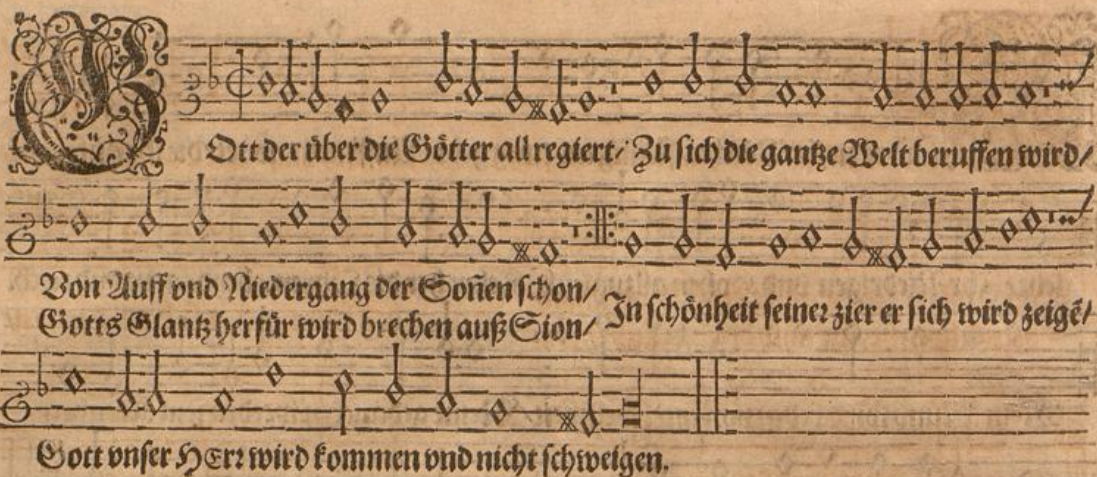 GOtt der über die Götter all regiert/ Zu sich die gantze Welt beruffen wird/
Von Auff vnd Niedergang der Soñen schon/
Gotts Glantz herfür wird brechen auß Sion/ In schönheit seiner zier er sich wird zeigē/
Gott vnser HErr wird kommen vnd nicht schweigen.